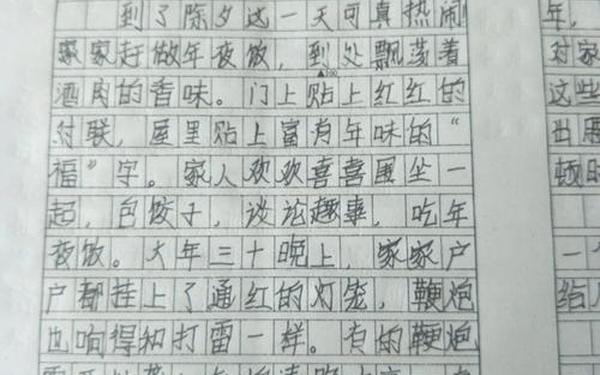 到了除夕这一天可真热闹
家家赶做年夜饭，到处飘荡着
▲100
酒肉的香味。门上贴上红红的
对联，屋里贴上富有年味的“
福”字。家人欢欢喜喜围坐一
起，包饺子，谈论趣事，吃年
夜饭。大年三十晚上，家家户
户都挂上了通红的灯笼，鞭炮
也响得和打雷一样。有的鞭炮
年，
对家
这些
出 
顿时
一
给